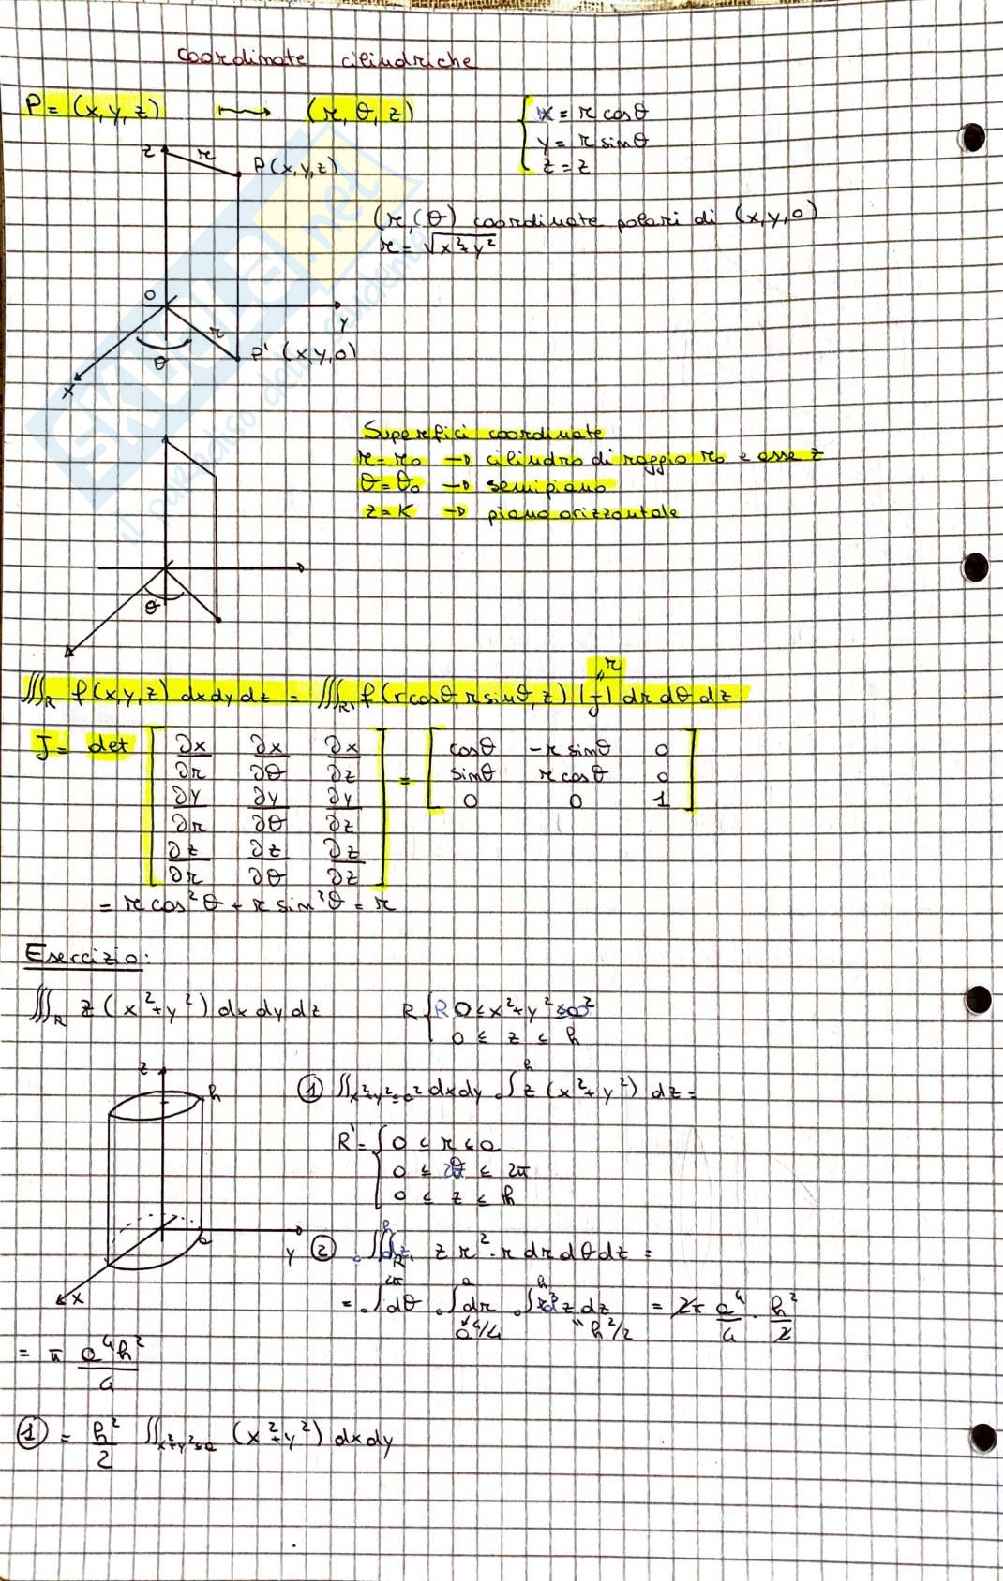 coordinate cilindriche
P = (x, y, z) ⟼ (r, θ, z)
{ x = r cosθ
y = r sinθ
z = z
z r P(x, y, z)
(r, (θ) coordinate polari di (x, y, 0)
r = √x²+y²
O
y
r
θ P' (x, y, 0)
x
Superfici coordinate
r = r₀ → cilindro di raggio r₀ e asse z
θ = θ₀ → semipiano
z = K → piano orizzontale
θ
∭_R f(x,y,z) dxdydz = ∭_R' f(r cosθ, r sinθ, z) |J| dr dθ dz
" r
J = det [ ∂x/∂r ∂x/∂θ ∂x/∂z
∂y/∂r ∂y/∂θ ∂y/∂z
∂z/∂r ∂z/∂θ ∂z/∂z ] = [ cosθ -r sinθ 0
sinθ r cosθ 0
0 0 1 ]
= r cos²θ + r sin²θ = r
Esercizio:
∭_R z (x²+y²) dx dy dz R { 0 ≤ x²+y² ≤ a²
0 ≤ z ≤ h
z h
① ∬_x²+y²≤a² dxdy ₀∫ʰ z (x²+y²) dz =
R' = { 0 ≤ r ≤ a
0 ≤ θ ≤ 2π
0 ≤ z ≤ h
a y
x
② ∭_R' z r² · r dr dθ dz =
= ₀∫²π dθ ₀∫ᵃ dr ₀∫ʰ r³ z dz = 2π a⁴/4 · h²/2
" a⁴/4 " h²/2
= π a⁴h²/4
① = h²/2 ∬_x²+y²≤a (x²+y²) dxdy
SKUOLA.net
il paradiso dello studente